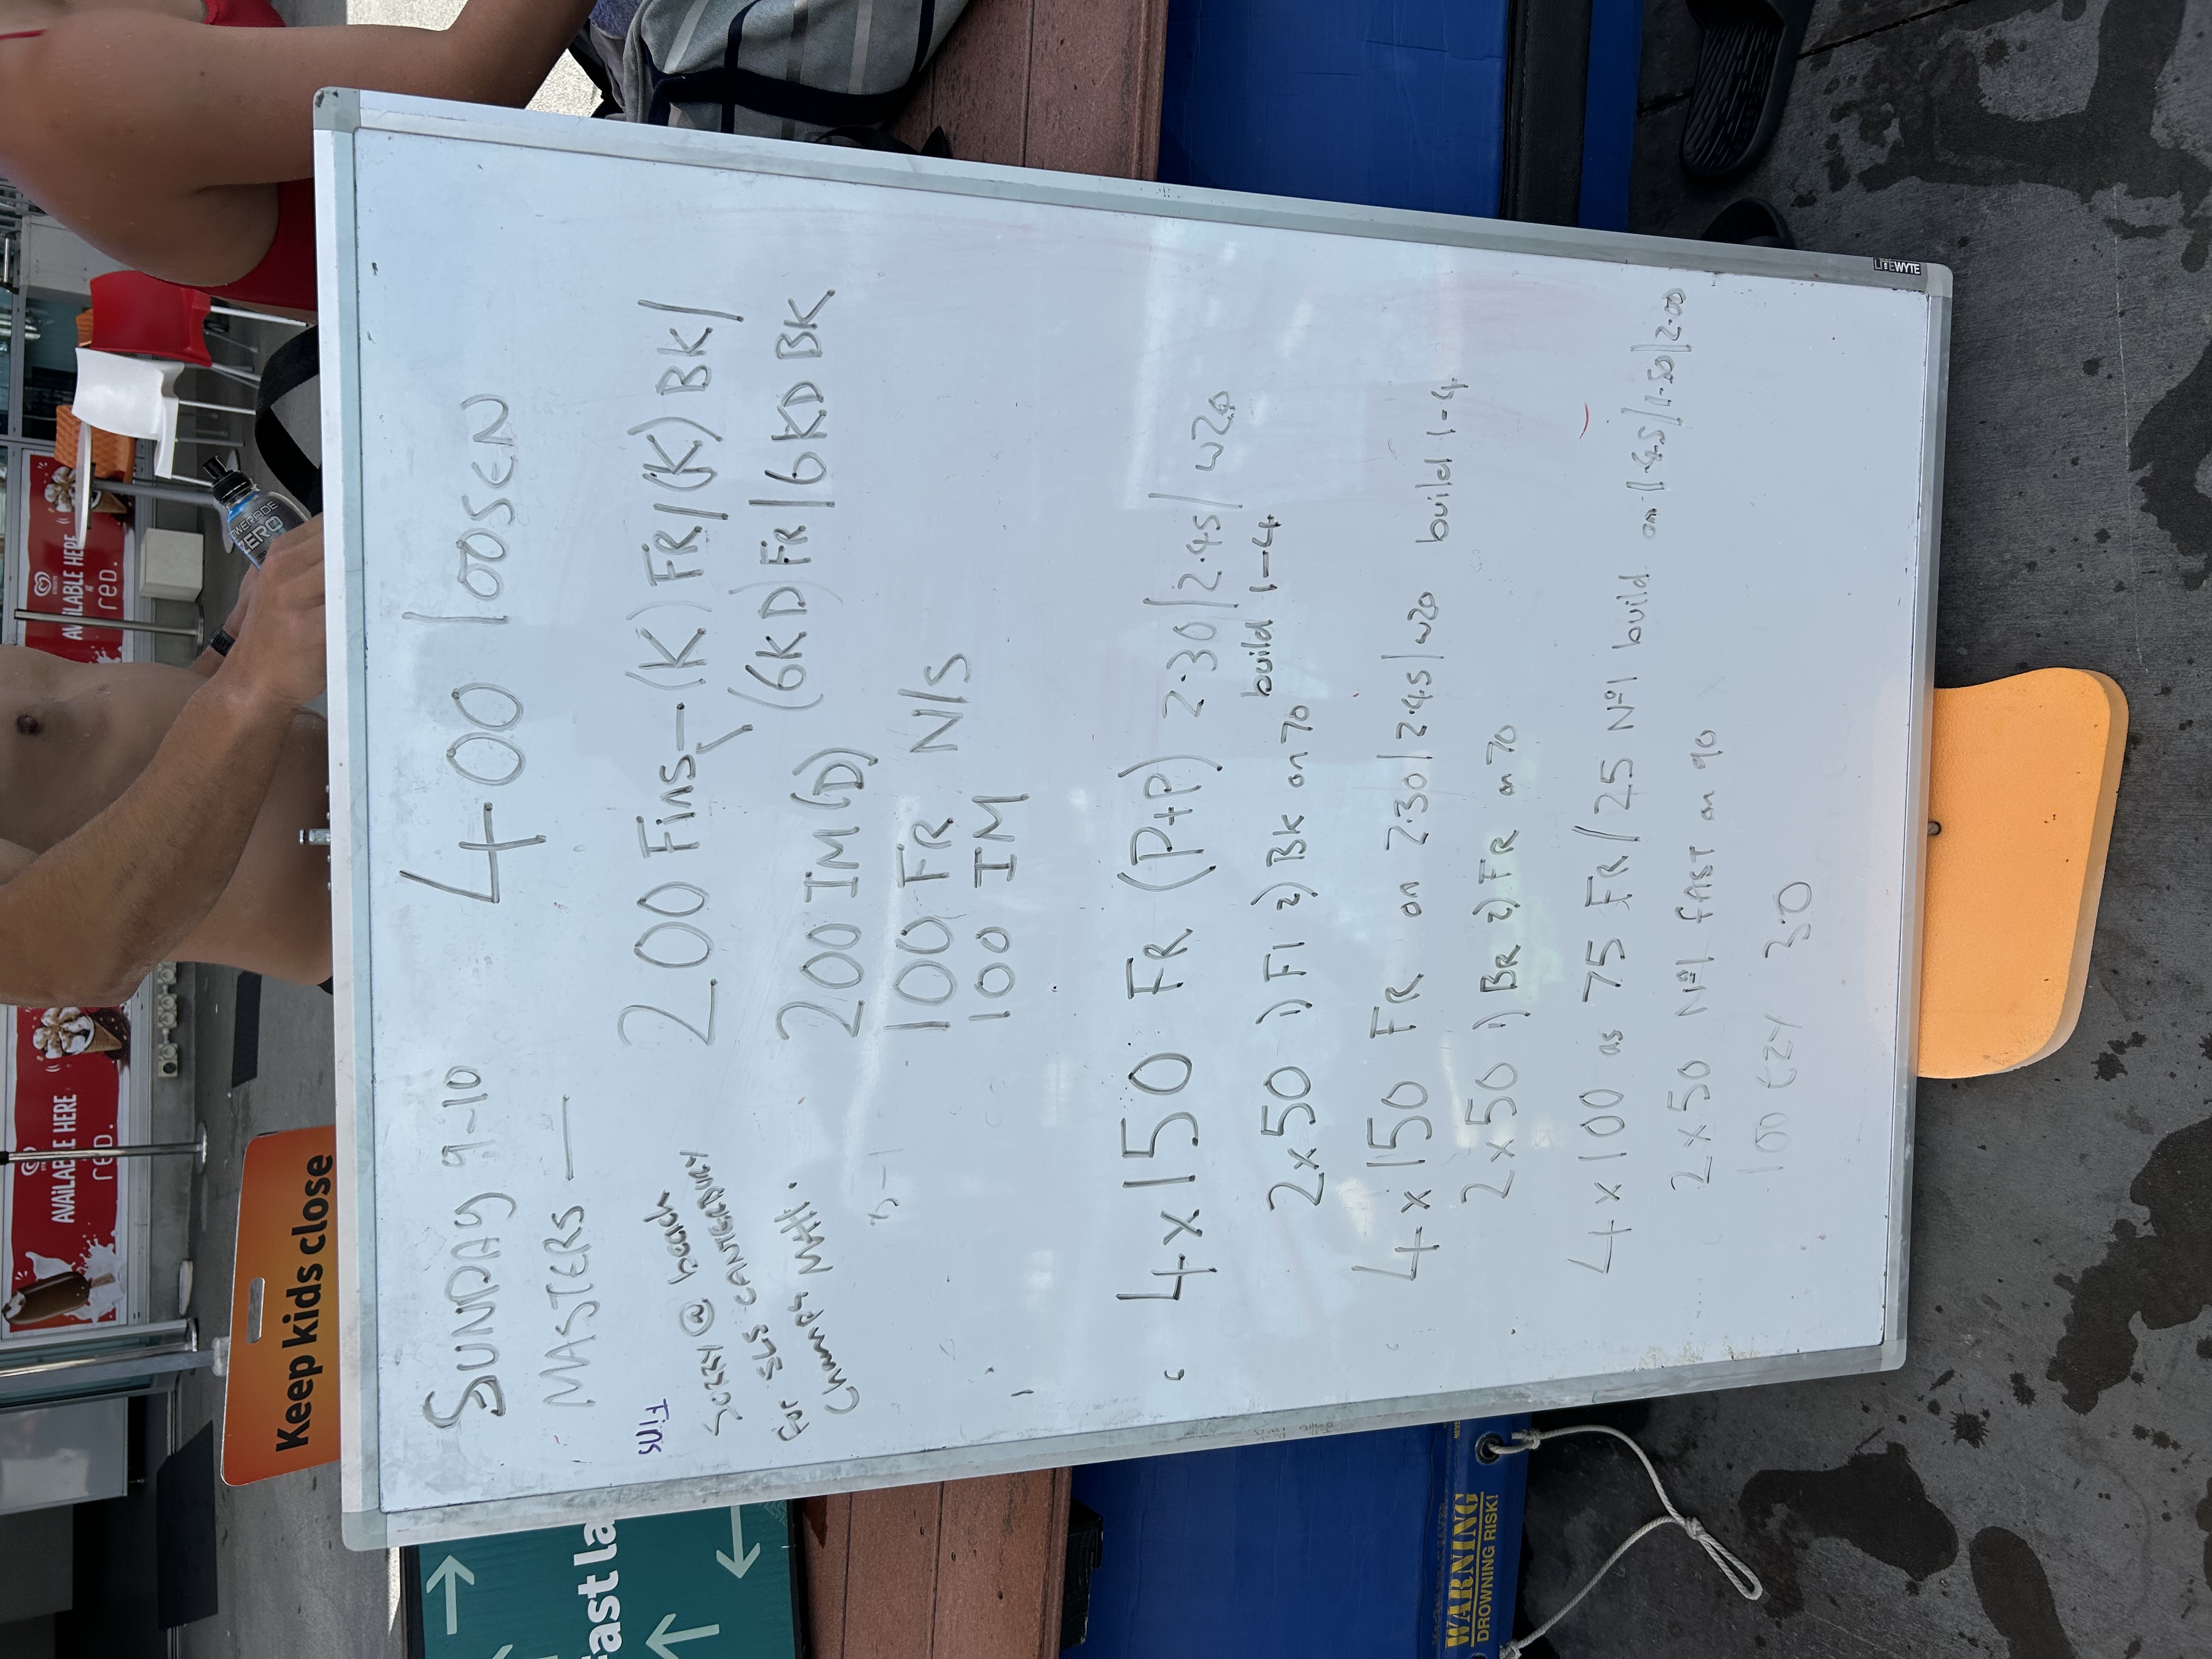 AVAILABLE HERE
red.
AVAILABLE HERE
AT
red.
POWERADE
ZERO
Keep kids close
Fast la
SUNDAY 9-10
MASTERS —
400 loosen
Fins
Sorry @ beach
for SLS CANTERBURY
Champs Matt.
200 Fins – (K) FR/(K) BK/
(6KD) FR/6KD BK
200 IM (D)
100 FR N/S
100 IM
4x150 FR (P+P) 2.30/2.45/ w20
build 1-4
2x50 1) Fl 2) BK on 70
4x150 FR on 2.30/2.45/w20 build 1-4
2x50 1) BR 2) FR on 70
4x100 as 75 FR/25 Nº1 build on 1.45/1.50/2.00
2x50 Nº1 FAST on 90
100 EZY 3.0
WARNING
DROWNING RISK!
LITEWYTE